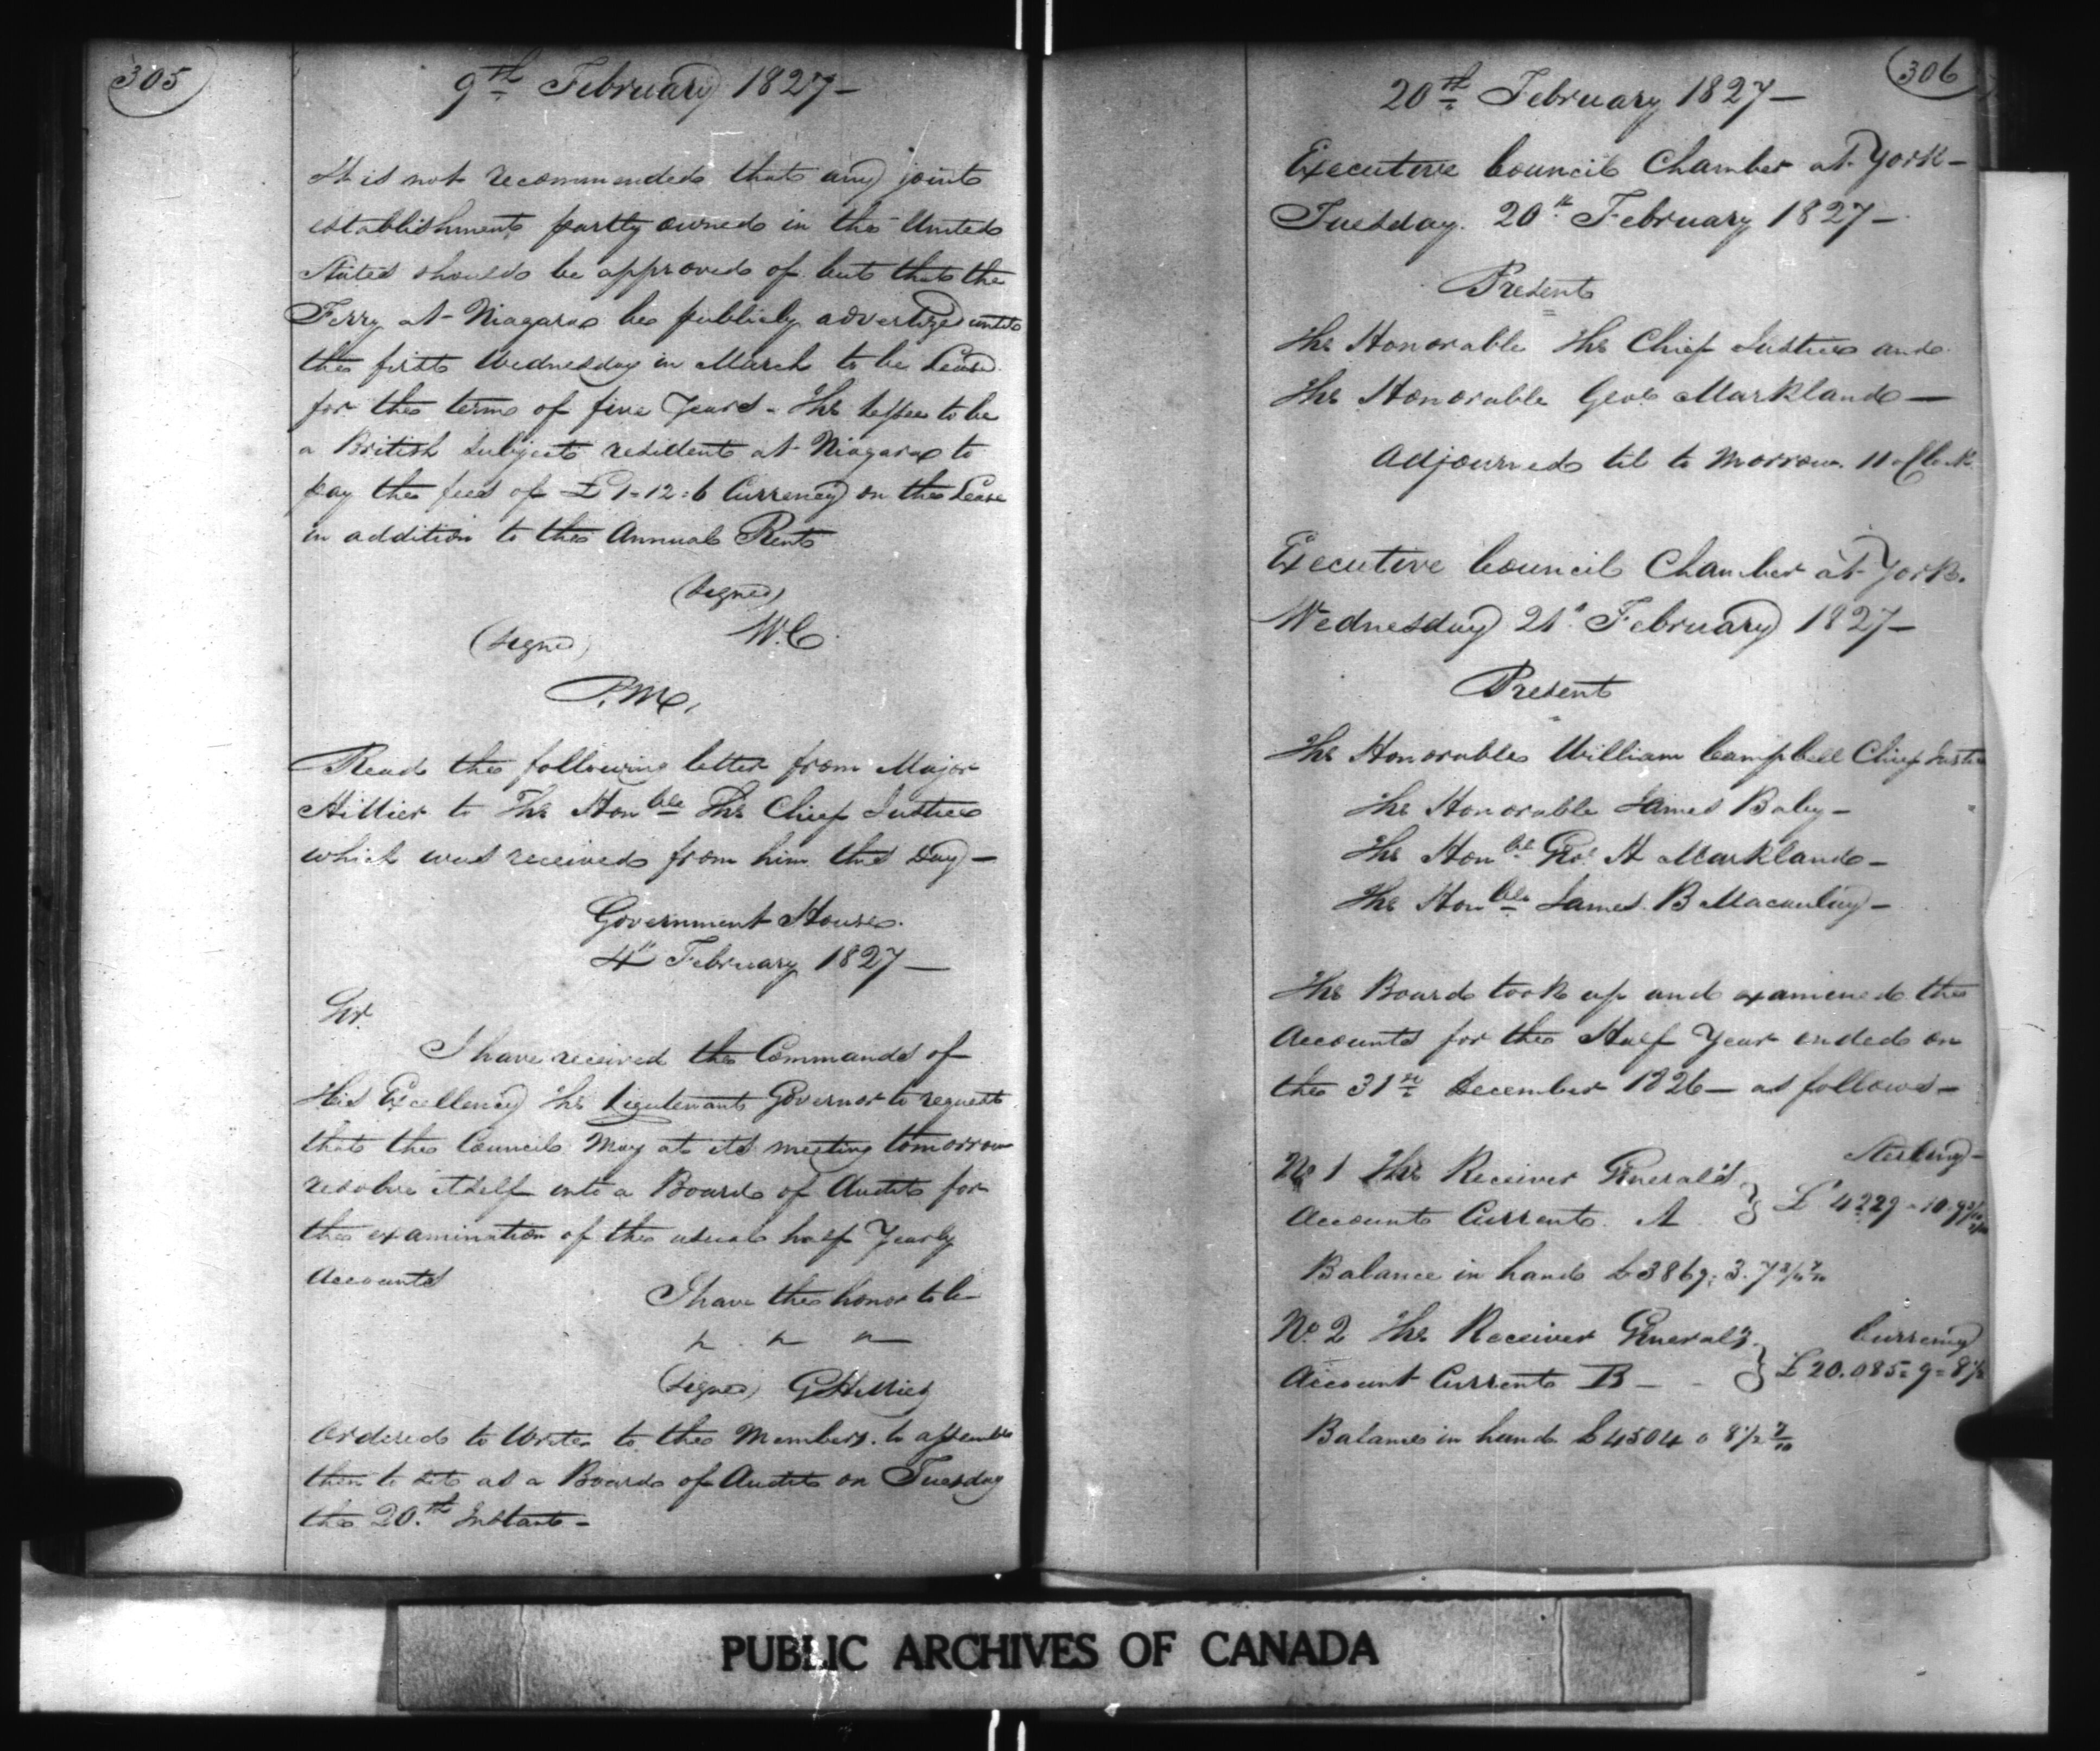 305
9th February 1827 —
It is not recommended that any joint
establishment partly owned in the United
States should be approved of but that the
Ferry at Niagara be publicly advertized until
the first Wednesday in March to be Leased
for the term of five Years - The lessee to be
a British subject resident at Niagara to
pay the fees of £1-12:6 Currency on the Lease
in addition to the Annual Rent
(signed)
W.C.
(signed)
P.M.
Read the following letter from Major
Hillier to The Honble The Chief Justice
which was received from him this Day —
Government House.
4th February 1827 —
Sir.
I have received the Commands of
His Excellency The Lieutenant Governor to request
that the Council May at its meeting tomorrow
resolve itself into a Board of Audit for
the examination of the usual half Yearly
Accounts
I have the honor to be
" " "
(signed) G Hillier
Ordered to Write to the Members to assemble
then to sit as a Board of Audit on Tuesday
the 20.th Instant -
306
20th February 1827 —
Executive Council Chamber at York —
Tuesday. 20th February 1827 —
Present
The Honorable The Chief Justice and
The Honorable Geo. Markland —
Adjourned til to Morrow. 11 oClock
Executive Council Chamber at York.
Wednesday 21st February 1827 —
Present
The Honorable William Campbell Chief Justice
The Honorable James Baby —
The Honble Geo. H Markland —
The Honble James B Macaulay —
The Board took up and examined the
Accounts for the Half Year ended on
the 31st December 1826 — as follows —
Sterling —
No 1 The Receiver General's
Account Current. A } £ 4229 - 10. 9
Balance in hand £3869: 3. 7
No. 2 The Receiver General's
Currency
Account Current B — } £20.085 = 9 = 8½
Balance in hand £4504 0 8½ 7/10
PUBLIC ARCHIVES OF CANADA